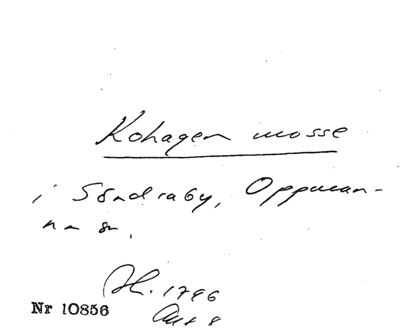 Kohagen mosse
i Söndraby, Oppman-
na sn.
1796
Nr 10856